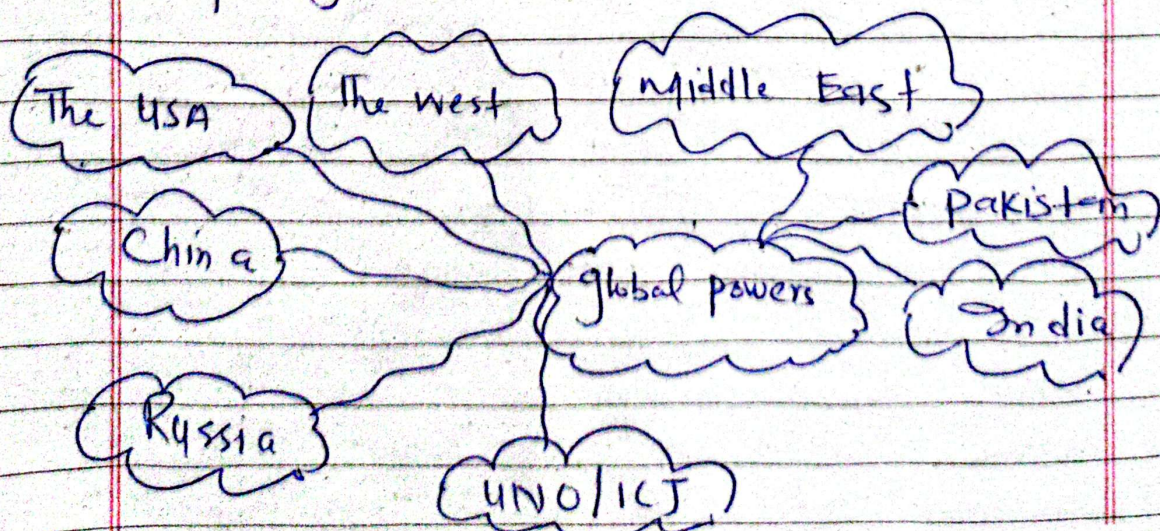 The USA
The west
Middle East
Pakistan
China
global powers
India
Russia
UNO/ICJ